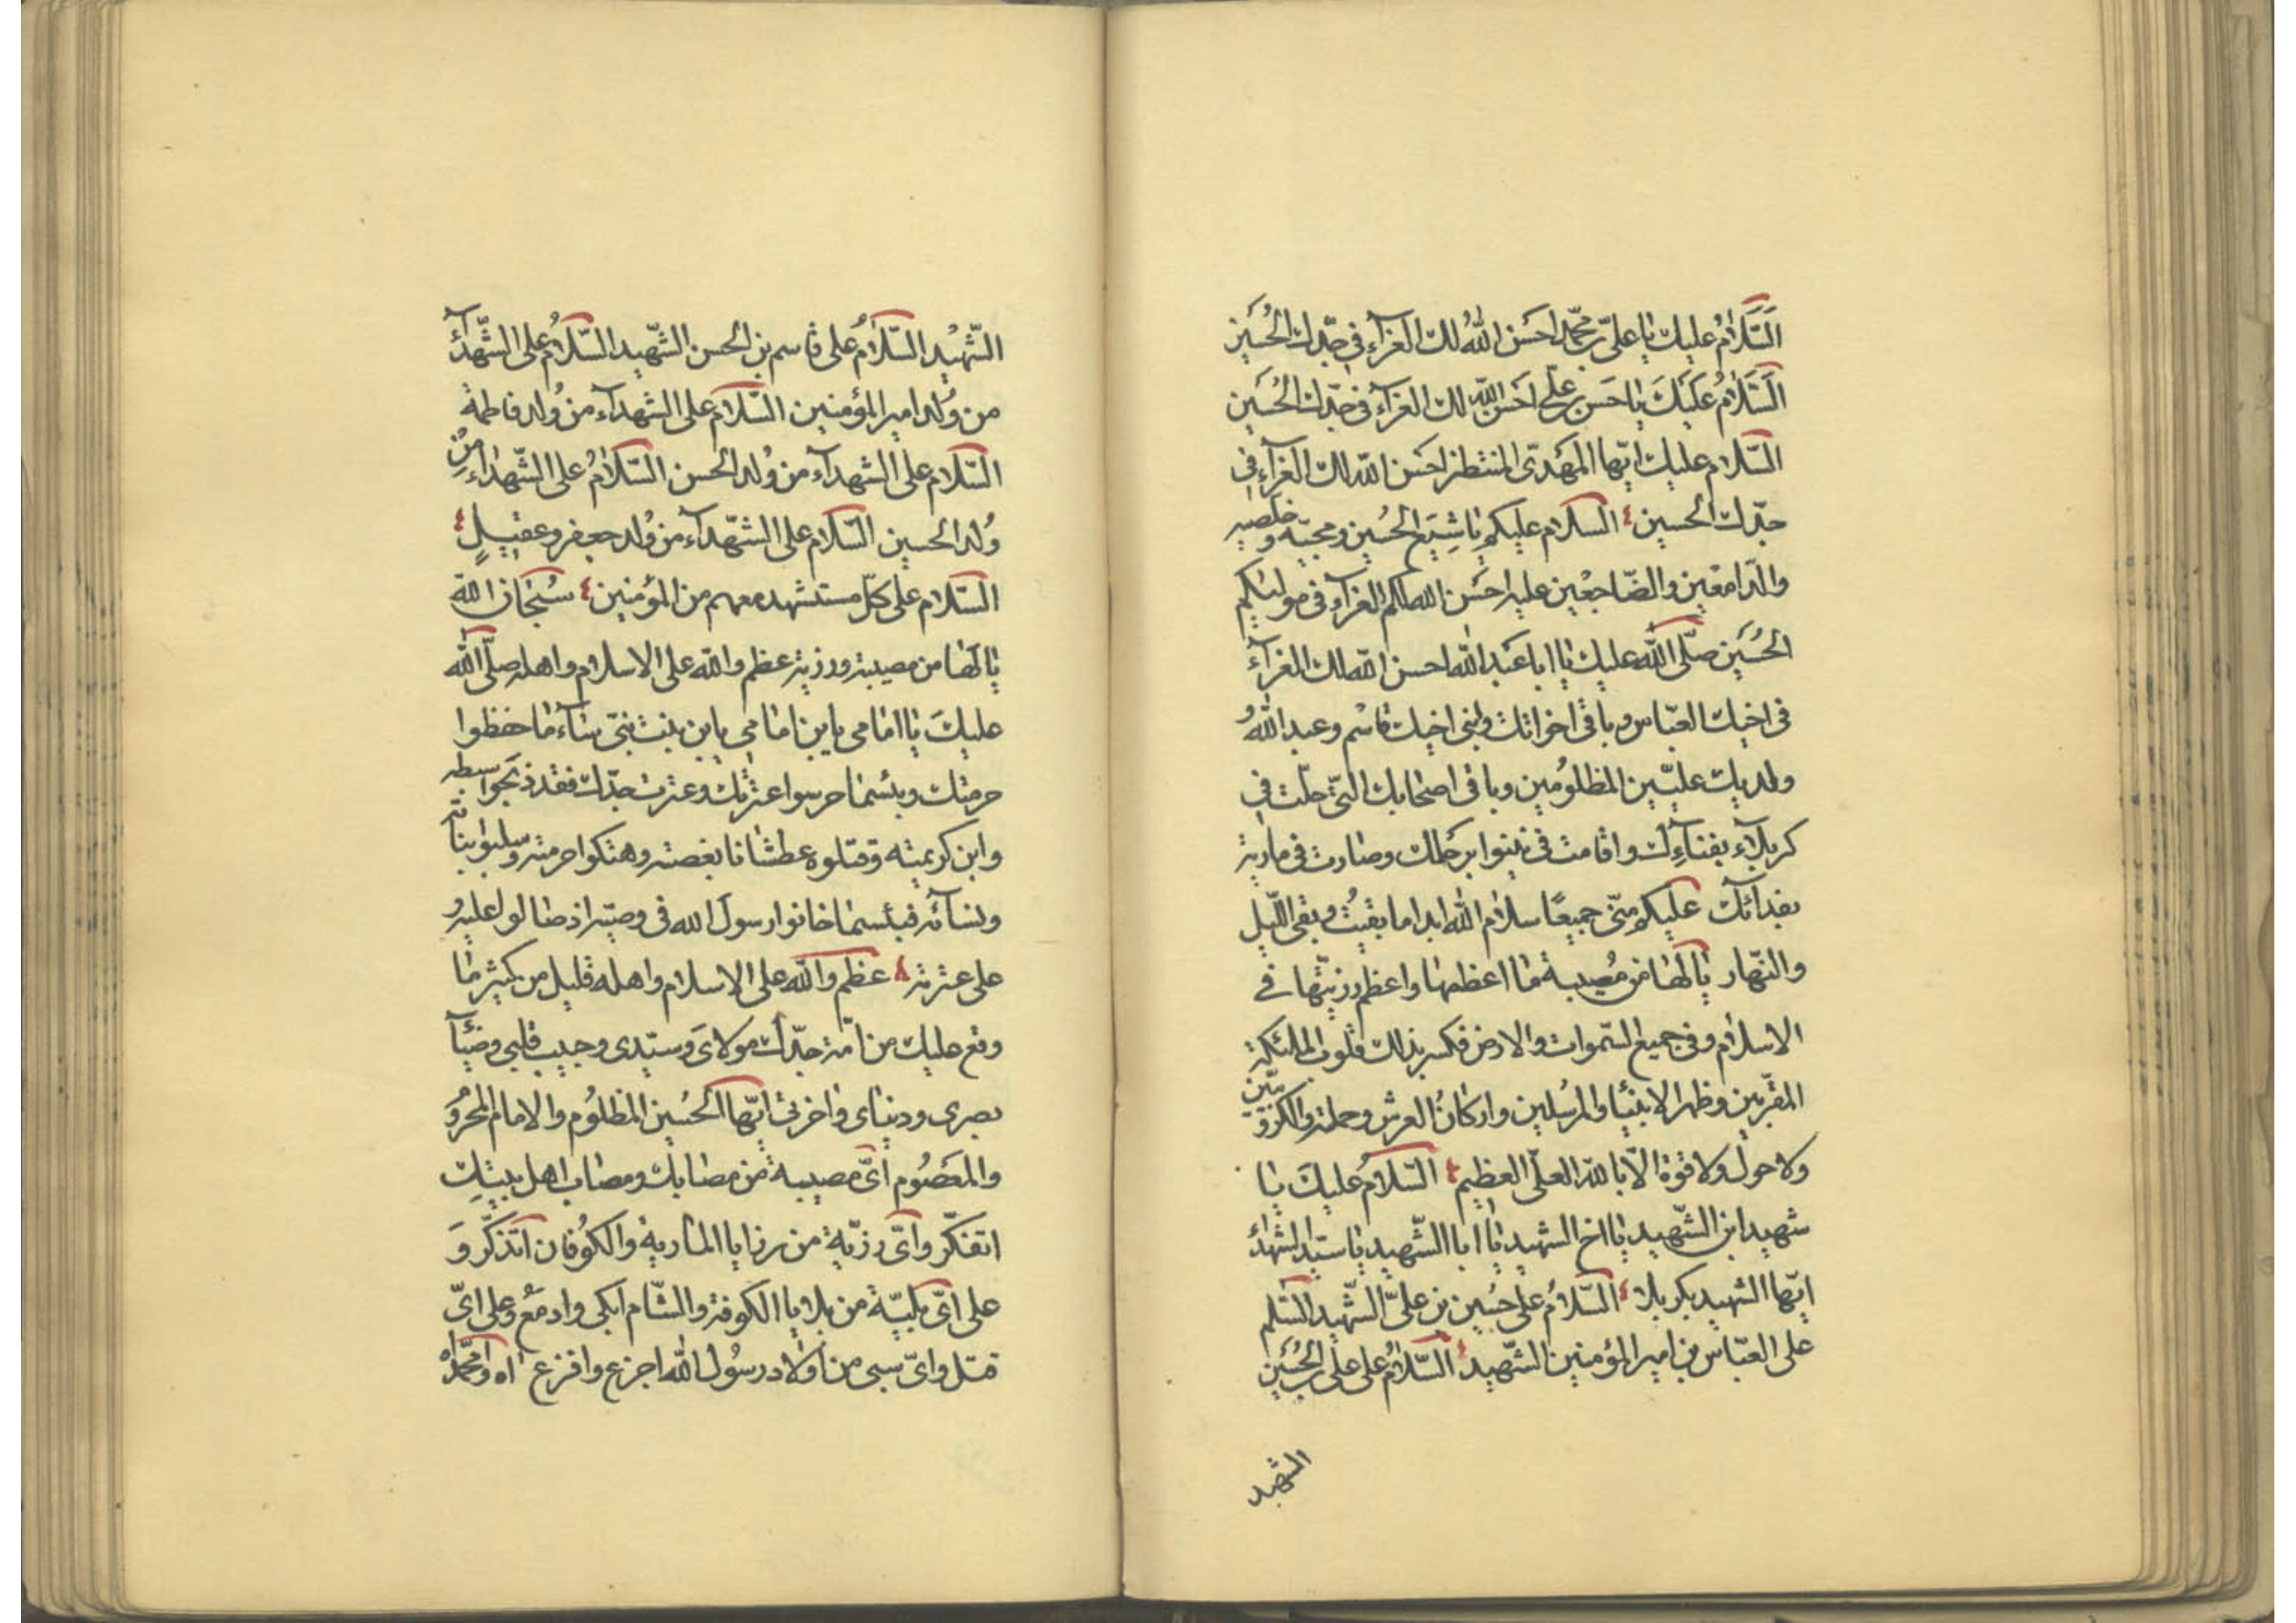 السّلام عليك يا علىّ بن محمّد احسن الله لك العزآء فى جدّك الحُسَين
اَلسَّلامُ عَلَيكَ يا حَسَن بن علىّ احسَن الله لك العزآء فى جدّك الحُسَين
السّلام عليك ايّها المَهدىّ المنتظر احسَن الله لك العزآء فى
جدّك الحسين السلام عليكم يا شِيَع الحُسين ومحبّيه و
والدّامعين والضّاجعين عليه احسَن الله لكم العزآء فى موليكم
الحُسَين صلّى الله عليك يا ابا عَبد الله احسن الله لك العزآء
فى اخيك العبّاس وباقى اخوانك وبنى اخيك قاسم وعبد اللهُ
ولديك عليّين المظلُومين وباقى اصحابك الّتى حلّت فى
كربلآء بفنآءِك واقامت فى نينوا برحلك وصارت فى مارية
بفدائك عليكم منّى جميعًا سلام الله ابدا ما بقيتُ وبقى اللّيل
والنّهار يا لها من مُصيبة ما اعظمها واعظم رزيّتها فى
الاسلام وفى جميع السّموات والارض فكسر بذلك قلوب الملئكة
المقرّبين وظهر الانبيا والمرُسلين واركانُ العرش وحملته والكرّوبيّن
ولا حول ولا قوة الّا بالله العلىّ العظيم السّلامُ عليكَ يا
شهيد ابن الشّهيد يا اخ الشهيد يا ابا الشّهيد يا سيّد الشهدآء
ايّها الشهيد بكربلا السّلامُ على حُسين بن علىّ الشّهيد السّلم
على العبّاس بن امير المؤمنين الشّهيد السّلامُ على على بن الحُسَين
الشهيد
الشّهيْد السّلامُ على قاسم بن الحسن الشّهيد السّلامُ على الشّهدآء
من وُلد امير المؤمنين السّلام على الشهدآء من وُلد فاطمة
السّلام على الشهدآء من وُلد الحسن السّلامُ على الشّهداء مِن
وُلد الحسين السّلام على الشّهدآء من وُلد جعفر وعقيلٍ
السّلام على كلّ مستشهد معهم من المؤمنين سُبحان الله
يا لها من مصيبة ورزية عظم والله على الاسلام واهله صلّى الله
عليكَ يا امامى يابن امامى يابن بنت نبىّ ما حفظوا
حرمتك وبئسما حرسوا عترتك وعترت جدّك فقد ذبحوا سبطه
وابن كريمته وقتلوه عطشانا بغصته وهتكوا حرمته وسلبوا بناته
ونسآئه فبئسما خانوا رسول الله فى وصيّه اذ صالوا عليه و
على عترته عظم والله على الاسلام واهله قليل من كثير ما
وقع عليك من امّة جدّك مولاىَ وسيّدى وحبيب قلبى وضيآء
بصرى ودنياى واخرتى ايّها الحُسين المظلُوم والامام المحرُو
والمعَصُوم اىّ مصيبة من مصابك ومصاب اهل بيتك
اتفكّر واىّ رزيّة من رزايا المارية والكوُفان اتذكّر وَ
على اىّ بليّة من بلايا الكوفة والشّام ابكى وادمعُ وعلى اىّ
قتل واىّ سبى من اولاد رسوُل الله اجزع وافزع اه وامحمّداه